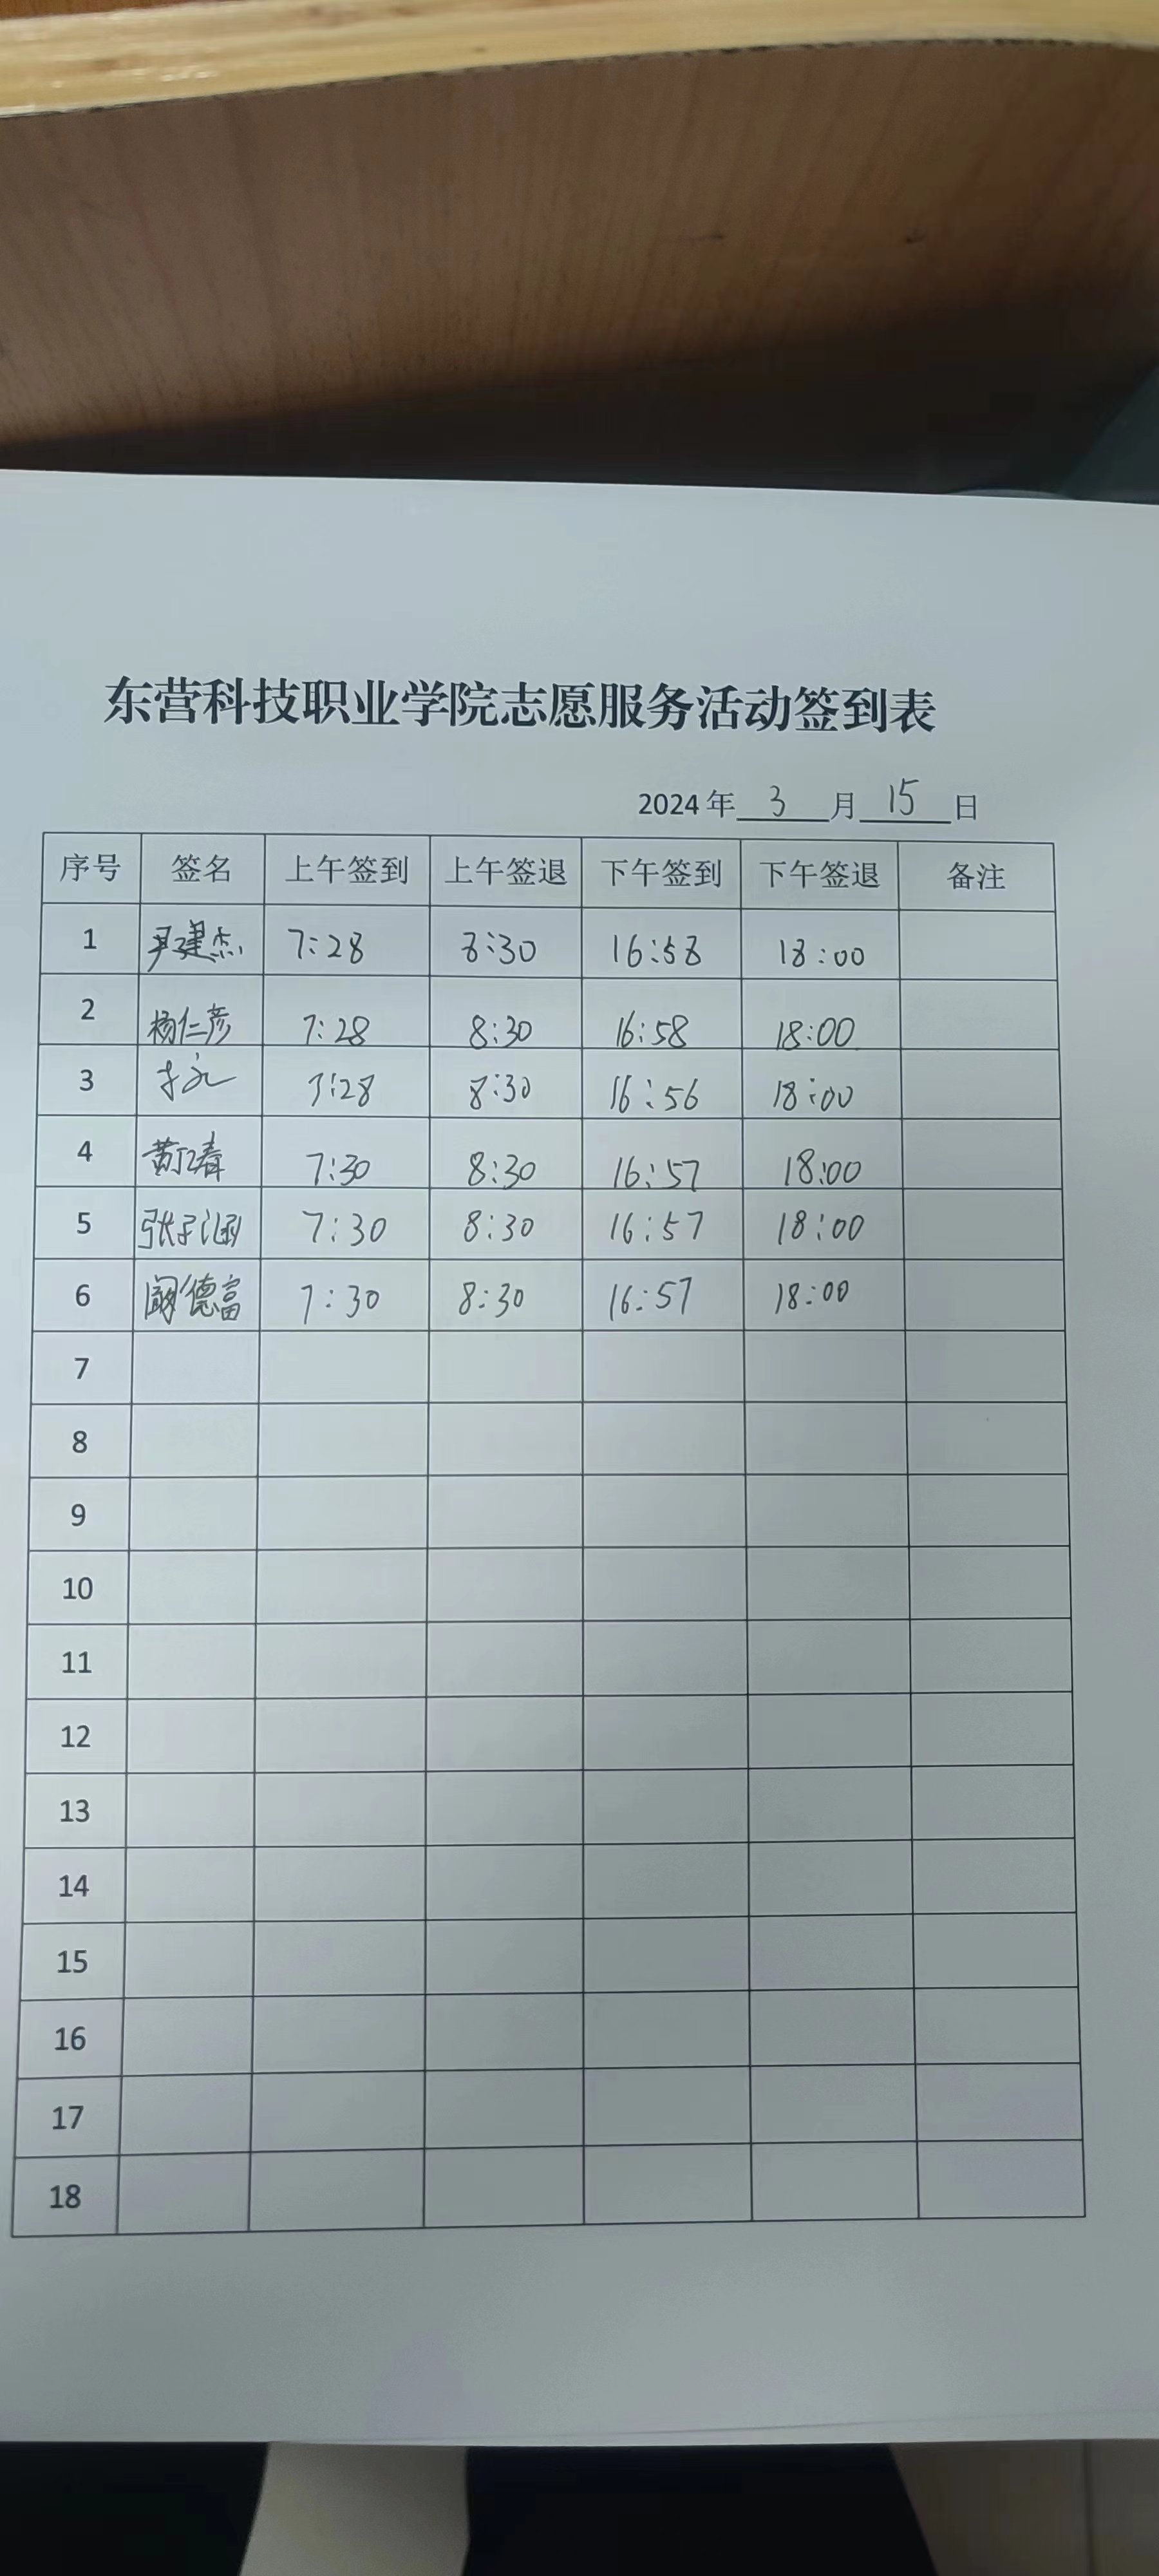 东营科技职业学院志愿服务活动签到表
2024 年 3 月 15 日
序号 签名 上午签到 上午签退 下午签到 下午签退 备注
1 尹建杰 7:28 8:30 16:58 18:00
2 杨仁彦 7:28 8:30 16:58 18:00
3 7:28 8:30 16:56 18:00
4 7:30 8:30 16:57 18:00
5 张子涵 7:30 8:30 16:57 18:00
6 阚德富 7:30 8:30 16:57 18:00
7
8
9
10
11
12
13
14
15
16
17
18